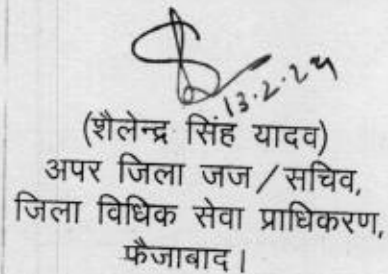 13.2.24
(शैलेन्द्र सिंह यादव)
अपर जिला जज/सचिव,
जिला विधिक सेवा प्राधिकरण,
फैजाबाद।